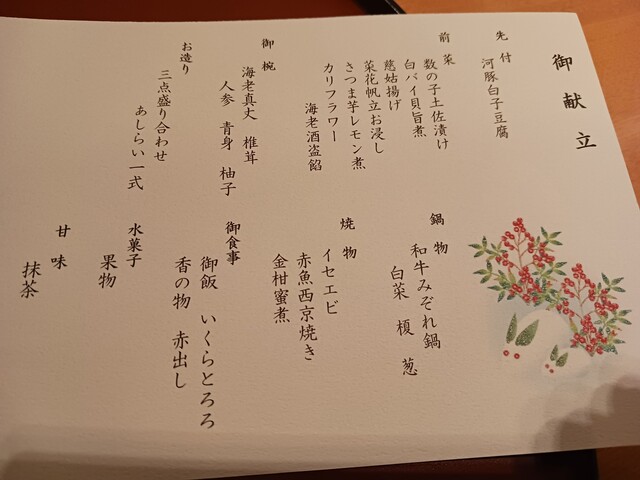 御献立
先付
河豚白子豆腐
前菜
数の子土佐漬け
白バイ貝旨煮
慈姑揚げ
菜花帆立お浸し
さつま芋レモン煮
カリフラワー
海老酒盗餡
御椀
海老真丈 椎茸
人参 青身 柚子
お造り
三点盛り合わせ
あしらい一式
鍋物
和牛みぞれ鍋
白菜 榎 葱
焼物
イセエビ
赤魚西京焼き
金柑蜜煮
御食事
御飯 いくらとろろ
香の物 赤出し
水菓子
果物
甘味
抹茶